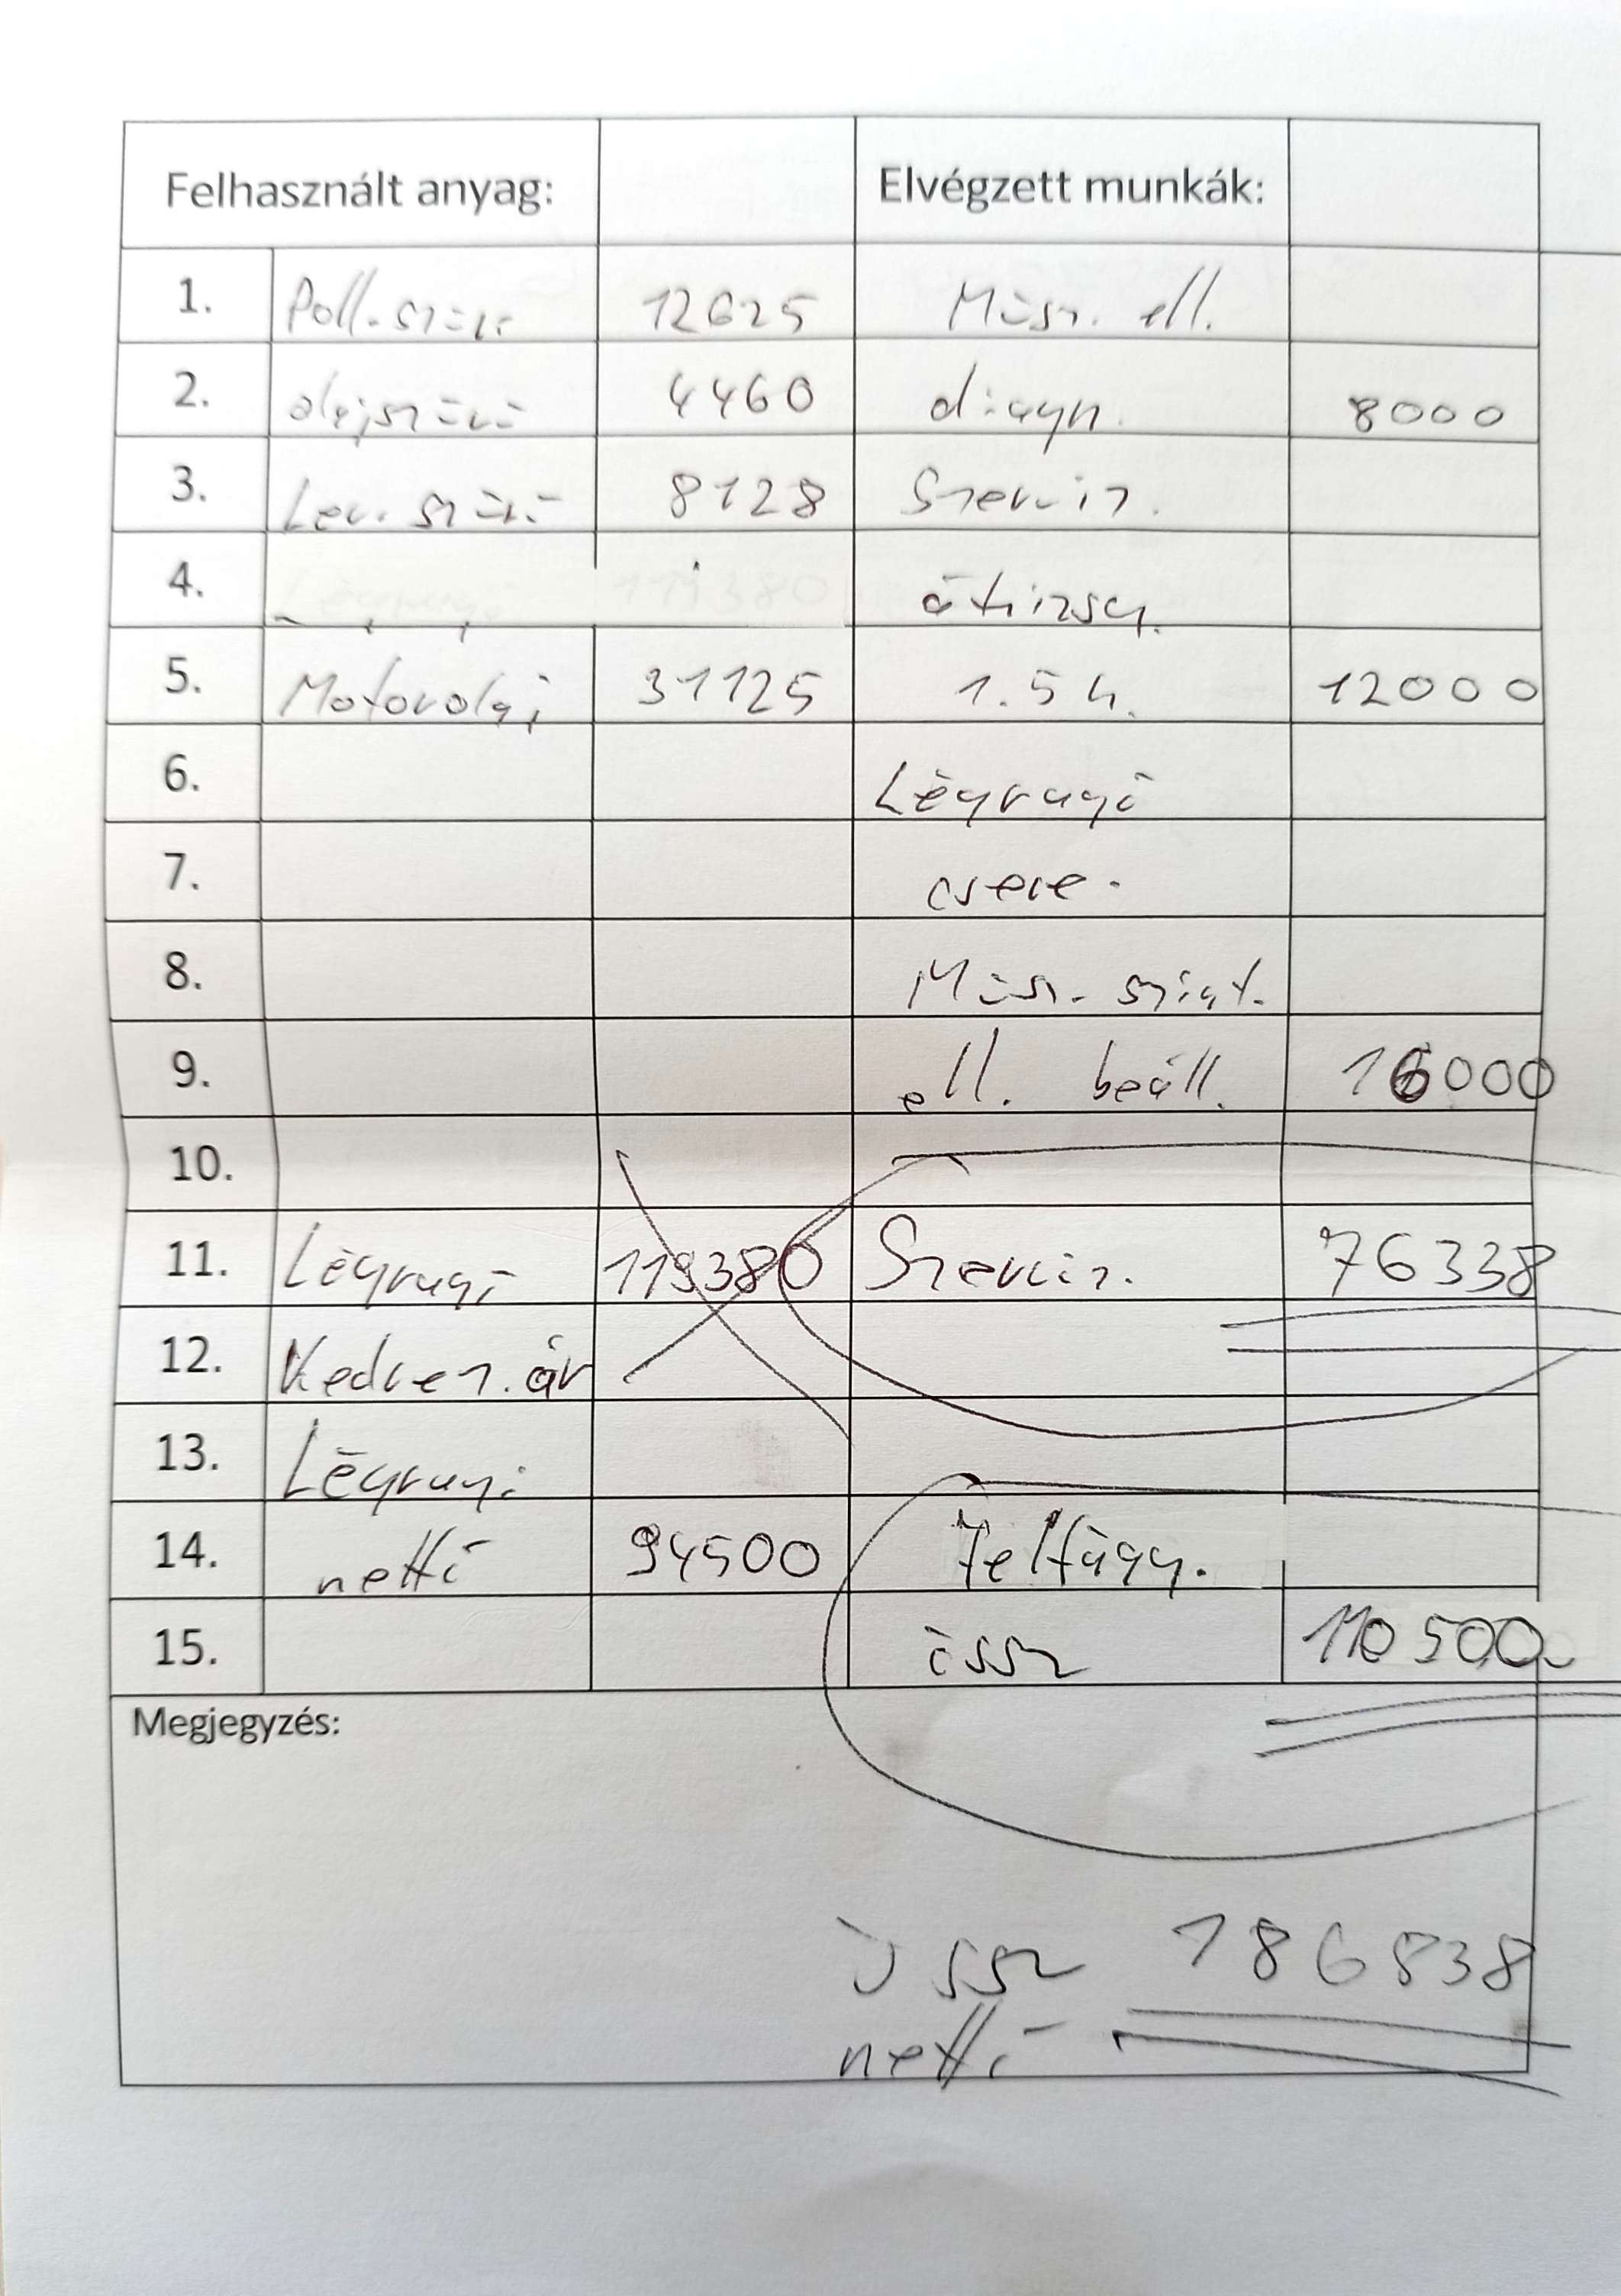 Felhasznált anyag: Elvégzett munkák:
1. Poll. szűrő 12625 Műsz. ell.
2. olajszűrő 4460 diagn. 8000
3. Lev. szűrő 8128 Szerviz.
4. Légrugó 119380 átvizsg.
5. Motorolaj 31125 1.5 h. 12000
6. Légrugó
7. csere.
8. Műsz. szint.
9. ell. beáll. 16000
10.
11. Légrugó 119380 Szerviz. 76338
12. Kedvez. ár
13. Légrugó
14. nettó 94500 Felfügg.
15. össz 110500
Megjegyzés:
össz 186838
nettó